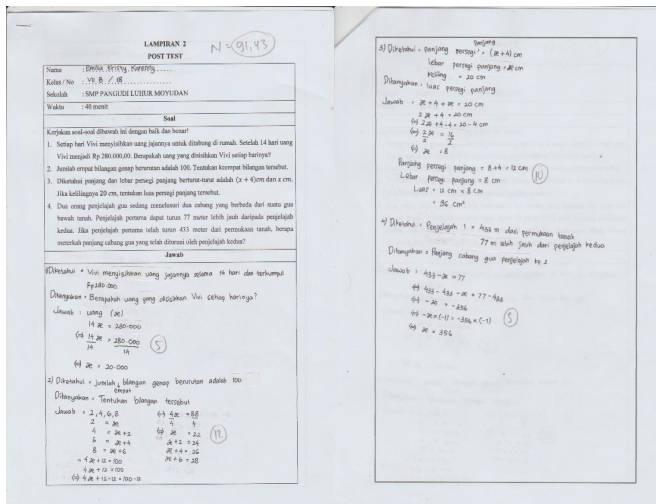 LAMPIRAN 2
N = 91,43
POST TEST
Nama :
Kelas / No : VII B / 18
Sekolah : SMP PANGUDI LUHUR MOYUDAN
Waktu : 40 menit
Soal
Kerjakan soal-soal dibawah ini dengan baik dan benar!
1. Setiap hari Vivi menyisihkan uang jajannya untuk ditabung di rumah. Setelah 14 hari uang
Vivi menjadi Rp.280.000,00. Berapakah uang yang disisihkan Vivi setiap harinya?
2. Jumlah empat bilangan genap berurutan adalah 100. Tentukan keempat bilangan tersebut.
3. Diketahui panjang dan lebar persegi panjang berturut-turut adalah (x + 4)cm dan x cm.
Jika kelilingnya 20 cm, tentukan luas persegi panjang tersebut.
4. Dua orang penjelajah gua sedang menelusuri dua cabang yang berbeda dari suatu gua
bawah tanah. Penjelajah pertama dapat turun 77 meter lebih jauh daripada penjelajah
kedua. Jika penjelajah pertama telah turun 433 meter dari permukaan tanah, berapa
meterkah panjang cabang gua yang telah dituruni oleh penjelajah kedua?
Jawab
1) Diketahui = Vivi menyisihkan uang jajannya selama 14 hari dan terkumpul
Rp280.000
Ditanyakan = Berapakah uang yang disisihkan Vivi setiap harinya?
Jawab : uang (x)
14 x = 280.000
(=) 14 x / 14 = 280.000 / 14
5
(=) x = 20.000
2) Diketahui = jumlah empat bilangan genap berurutan adalah 100
Ditanyakan = Tentukan bilangan tersebut
Jawab = 2, 4, 6, 8
2 = x
4 = x + 2
6 = x + 4
8 = x + 6
= 4x + 12 = 100
4x + 12 = 100
(=) 4x + 12 - 12 = 100 - 12
(=) 4x / 4 = 88 / 4
(=) x = 22
x + 2 = 24
x + 4 = 26
x + 6 = 28
12
3) Diketahui = panjang persegi panjang = (x + 4) cm
lebar persegi panjang = x cm
keliling = 20 cm
Ditanyakan = luas persegi panjang
Jawab = x + 4 + x = 20 cm
2x + 4 = 20 cm
(=) 2x + 4 - 4 = 20 - 4 cm
(=) 2x / 2 = 16 / 2
(=) x = 8
Panjang persegi panjang = 8 + 4 = 12 cm
Lebar persegi panjang = 8 cm
10
Luas = 12 cm × 8 cm
= 96 cm²
4) Diketahui = Penjelajah 1 = 433 m dari permukaan tanah
77 m lebih jauh dari penjelajah kedua
Ditanyakan = Panjang cabang gua penjelajah ke 2
Jawab = 433 - x = 77
(=) 433 - 433 - x = 77 - 433
(=) -x = -356
(=) -x × (-1) = -356 × (-1)
5
(=) x = 356